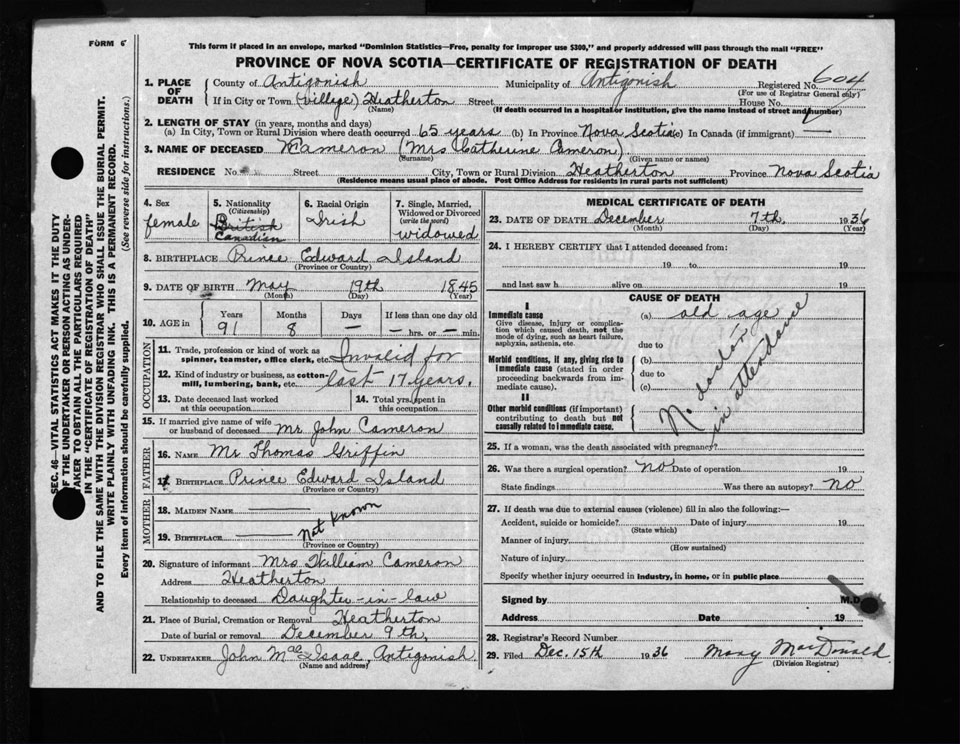 FORM 6
This form if placed in an envelope, marked "Dominion Statistics—Free, penalty for improper use $300," and properly addressed will pass through the mail "FREE"
PROVINCE OF NOVA SCOTIA—CERTIFICATE OF REGISTRATION OF DEATH
1. PLACE OF DEATH County of Antigonish Municipality of Antigonish Registered No. 604
(For use of Registrar General only)
If in City or Town (village) Heatherton Street House No.
(Name) (If death occurred in a hospital or institution, give the name instead of street and number)
2. LENGTH OF STAY (in years, months and days)
(a) In City, Town or Rural Division where death occurred 65 years (b) In Province Nova Scotia (c) In Canada (if immigrant) —
3. NAME OF DECEASED Cameron (Mrs Catherine Cameron)
(Surname) (Given name or names)
RESIDENCE No. Street City, Town or Rural Division Heatherton Province Nova Scotia
(Residence means usual place of abode. Post Office Address for residents in rural parts not sufficient)
4. Sex female
5. Nationality (Citizenship) British Canadian
6. Racial Origin Irish
7. Single, Married, Widowed or Divorced (write the word) widowed
8. BIRTHPLACE Prince Edward Island
(Province or Country)
9. DATE OF BIRTH May 19th 1845
(Month) (Day) (Year)
10. AGE in Years 91 Months 8 Days — If less than one day old — hrs. or — min.
OCCUPATION
11. Trade, profession or kind of work as spinner, teamster, office clerk, etc. Invalid for
12. Kind of industry or business, as cotton-mill, lumbering, bank, etc. last 17 years.
13. Date deceased last worked at this occupation
14. Total yrs. spent in this occupation
15. If married give name of wife or husband of deceased Mr John Cameron
FATHER
16. Name Mr Thomas Griffin
17. Birthplace Prince Edward Island
(Province or Country)
MOTHER
18. Maiden Name ——
19. Birthplace —— Not known
(Province or Country)
20. Signature of informant Mrs William Cameron
Address Heatherton
Relationship to deceased Daughter-in-law
21. Place of Burial, Cremation or Removal Heatherton
Date of burial or removal December 9th,
22. UNDERTAKER John MacIsaac, Antigonish
(Name and address)
MEDICAL CERTIFICATE OF DEATH
23. DATE OF DEATH December 7th, 1936
(Month) (Day) (Year)
24. I HEREBY CERTIFY that I attended deceased from:
19 to 19
and last saw h alive on 19
CAUSE OF DEATH
I
Immediate cause
Give disease, injury or complication which caused death, not the mode of dying, such as heart failure, asphyxia, asthenia, etc.
(a) old age
due to
Morbid conditions, if any, giving rise to immediate cause (stated in order proceeding backwards from immediate cause).
(b)
due to
(c)
II
Other morbid conditions (if important) contributing to death but not causally related to immediate cause.
No doctor in attendance
25. If a woman, was the death associated with pregnancy?
26. Was there a surgical operation? no Date of operation 19
State findings Was there an autopsy? no
27. If death was due to external causes (violence) fill in also the following:—
Accident, suicide or homicide? Date of injury 19
(State which)
Manner of injury
(How sustained)
Nature of injury
Specify whether injury occurred in industry, in home, or in public place
Signed by M.D.
Address Date 19
28. Registrar's Record Number
29. Filed Dec. 15th 1936 Mary MacDonald
(Division Registrar)
SEC. 46—VITAL STATISTICS ACT MAKES IT THE DUTY
OF THE UNDERTAKER OR PERSON ACTING AS UNDER-
TAKER TO OBTAIN ALL THE PARTICULARS REQUIRED
IN THE "CERTIFICATE OF REGISTRATION OF DEATH"
AND TO FILE THE SAME WITH THE DIVISION REGISTRAR WHO SHALL ISSUE THE BURIAL PERMIT.
WRITE PLAINLY WITH UNFADING INK. THIS IS A PERMANENT RECORD.
Every item of information should be carefully supplied. (See reverse side for instructions.)